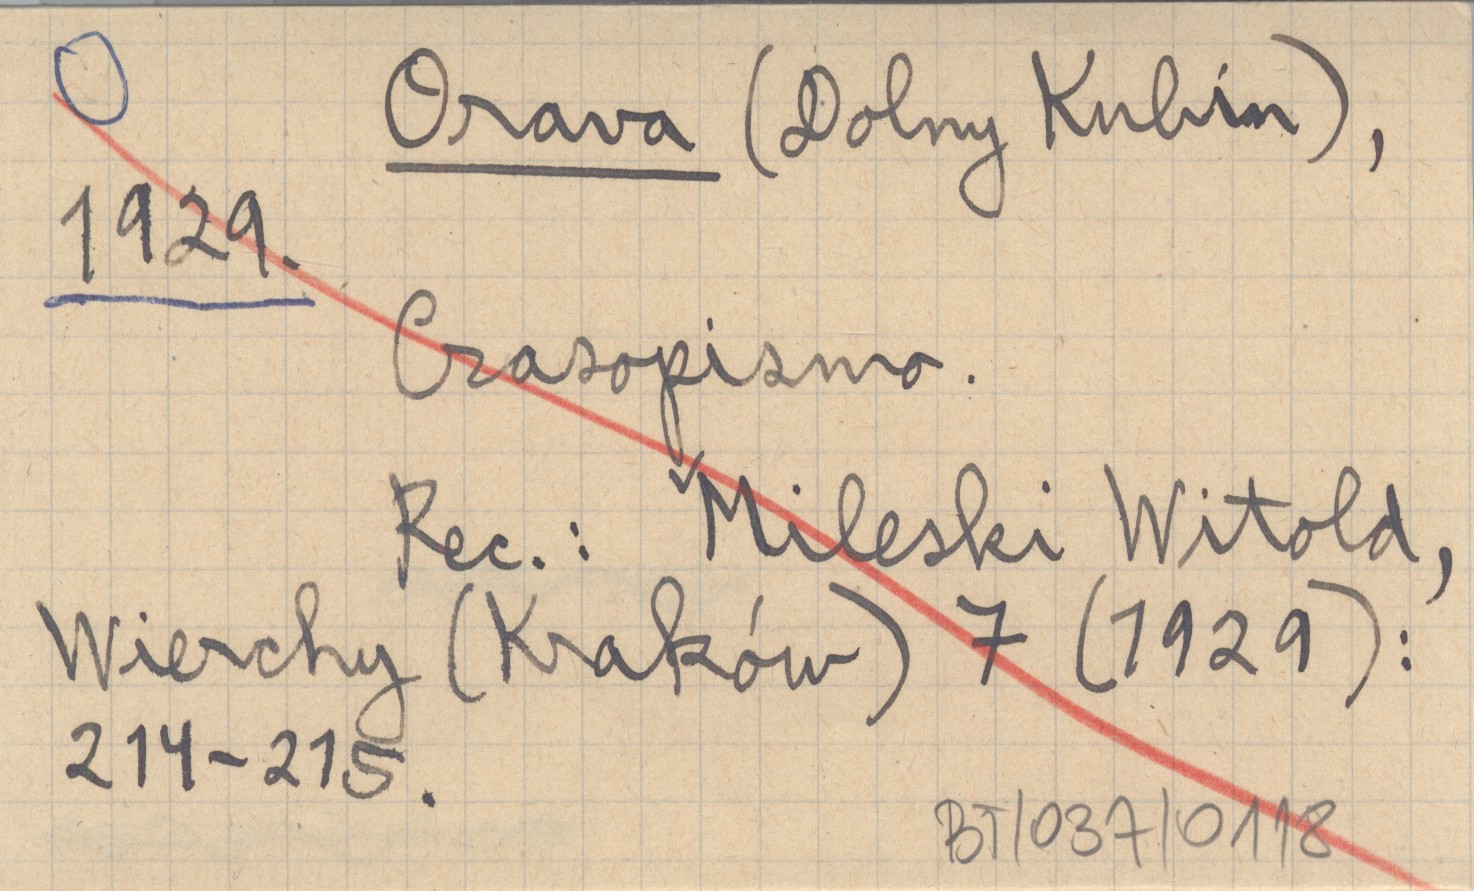 O
Orava (Dolny Kubin),
1929.
Czasopismo.
Rec.: Mileski Witold,
Wierchy (Kraków) 7 (1929):
214-215.
BT/037/0118